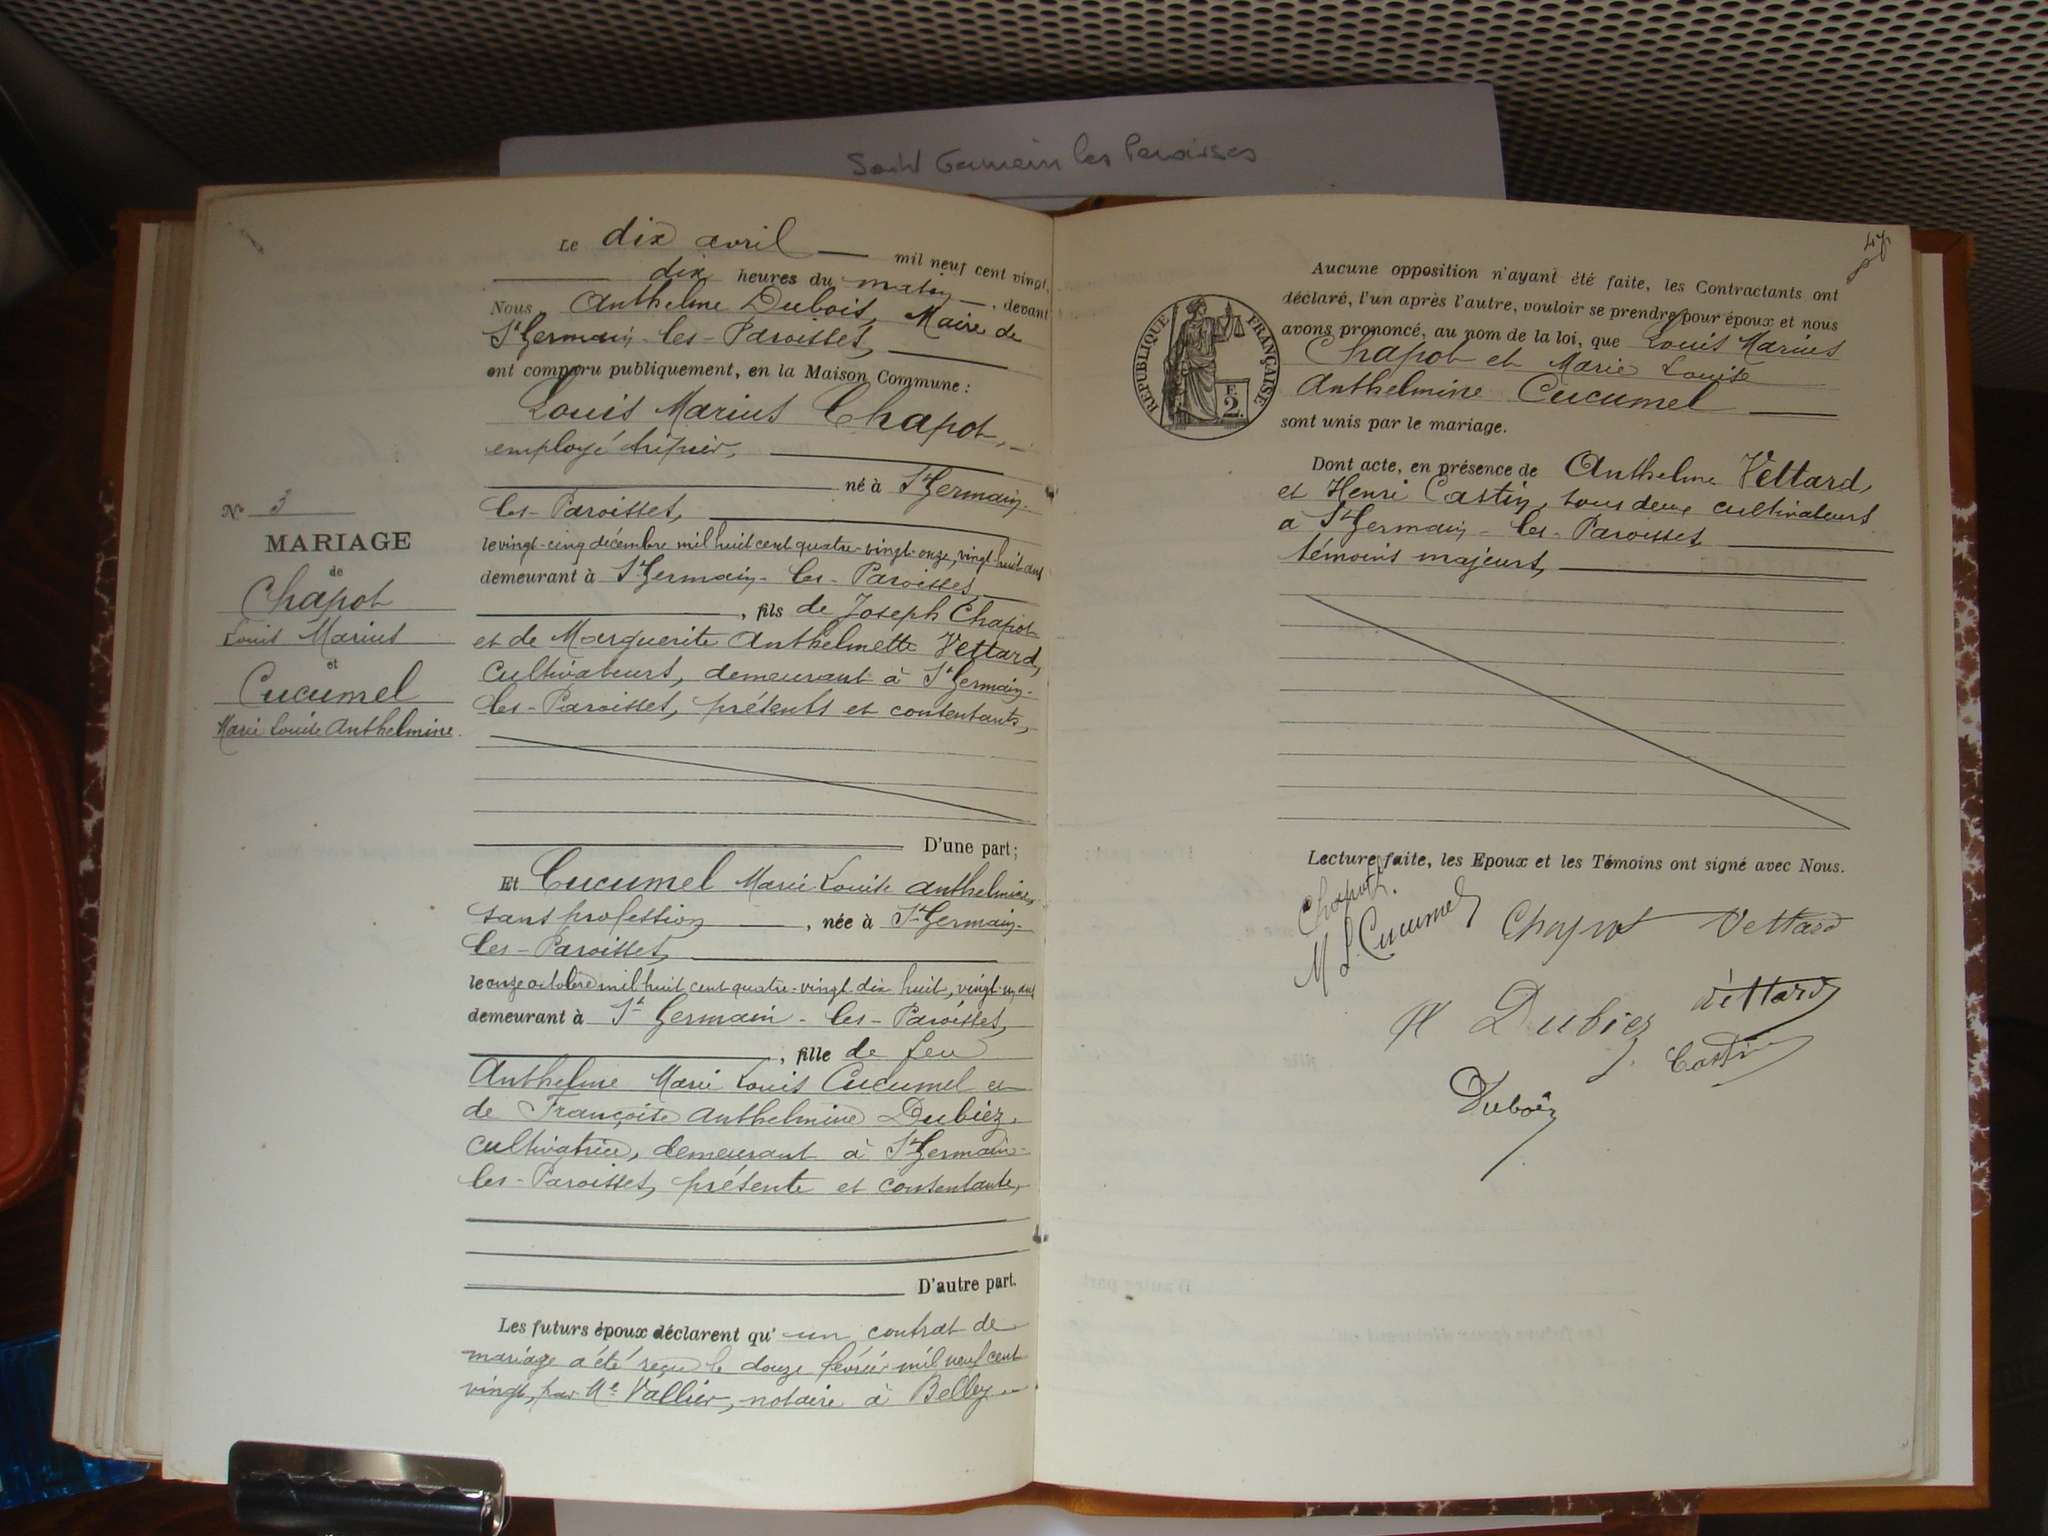 Saint Germain les Paroisses
Le dix avril mil neuf cent vingt,
dix heures du matin, devant
Nous Anthelme Dubois, Maire de
St Germain-les-Paroisses,
ont comparu publiquement, en la Maison Commune :
Louis Marius Chapot,
employé tripier,
né à St Germain-
les-Paroisses,
le vingt-cinq décembre mil huit cent quatre-vingt-onze, vingt-huit ans
demeurant à St Germain-les-Paroisses
, fils de Joseph Chapot
et de Marguerite Anthelmette Vettard,
cultivateurs, demeurant à St Germain-
les-Paroisses, présents et consentants,
D'une part ;
Et Cucumel Marie Louise Anthelmine,
sans profession, née à St Germain-
les-Paroisses,
le onze octobre mil huit cent quatre-vingt dix huit, vingt-un ans
demeurant à St Germain-les-Paroisses,
, fille de feu
Anthelme Marie Louis Cucumel et
de Françoise Anthelmine Dubiez,
cultivatrice, demeurant à St Germain-
les-Paroisses, présente et consentante,
D'autre part.
Les futurs époux déclarent qu'un contrat de
mariage a été reçu le douze février mil neuf cent
vingt, par Me Vallier, notaire à Belley
No 3
MARIAGE
de
Chapot
Louis Marius
et
Cucumel
Marie Louise Anthelmine.
47
RÉPUBLIQUE FRANÇAISE
F.
2
Aucune opposition n'ayant été faite, les Contractants ont
déclaré, l'un après l'autre, vouloir se prendre pour époux et nous
avons prononcé, au nom de la loi, que Louis Marius
Chapot et Marie Louise
Anthelmine Cucumel
sont unis par le mariage.
Dont acte, en présence de Anthelme Vettard,
et Henri Castin, tous deux cultivateurs
a St Germain-les-Paroisses
témoins majeurs,
Lecture faite, les Epoux et les Témoins ont signé avec Nous.
Chapot L.
M L Cucumel Chapot Vettard
A Dubiez Vettard
Castin
Dubois